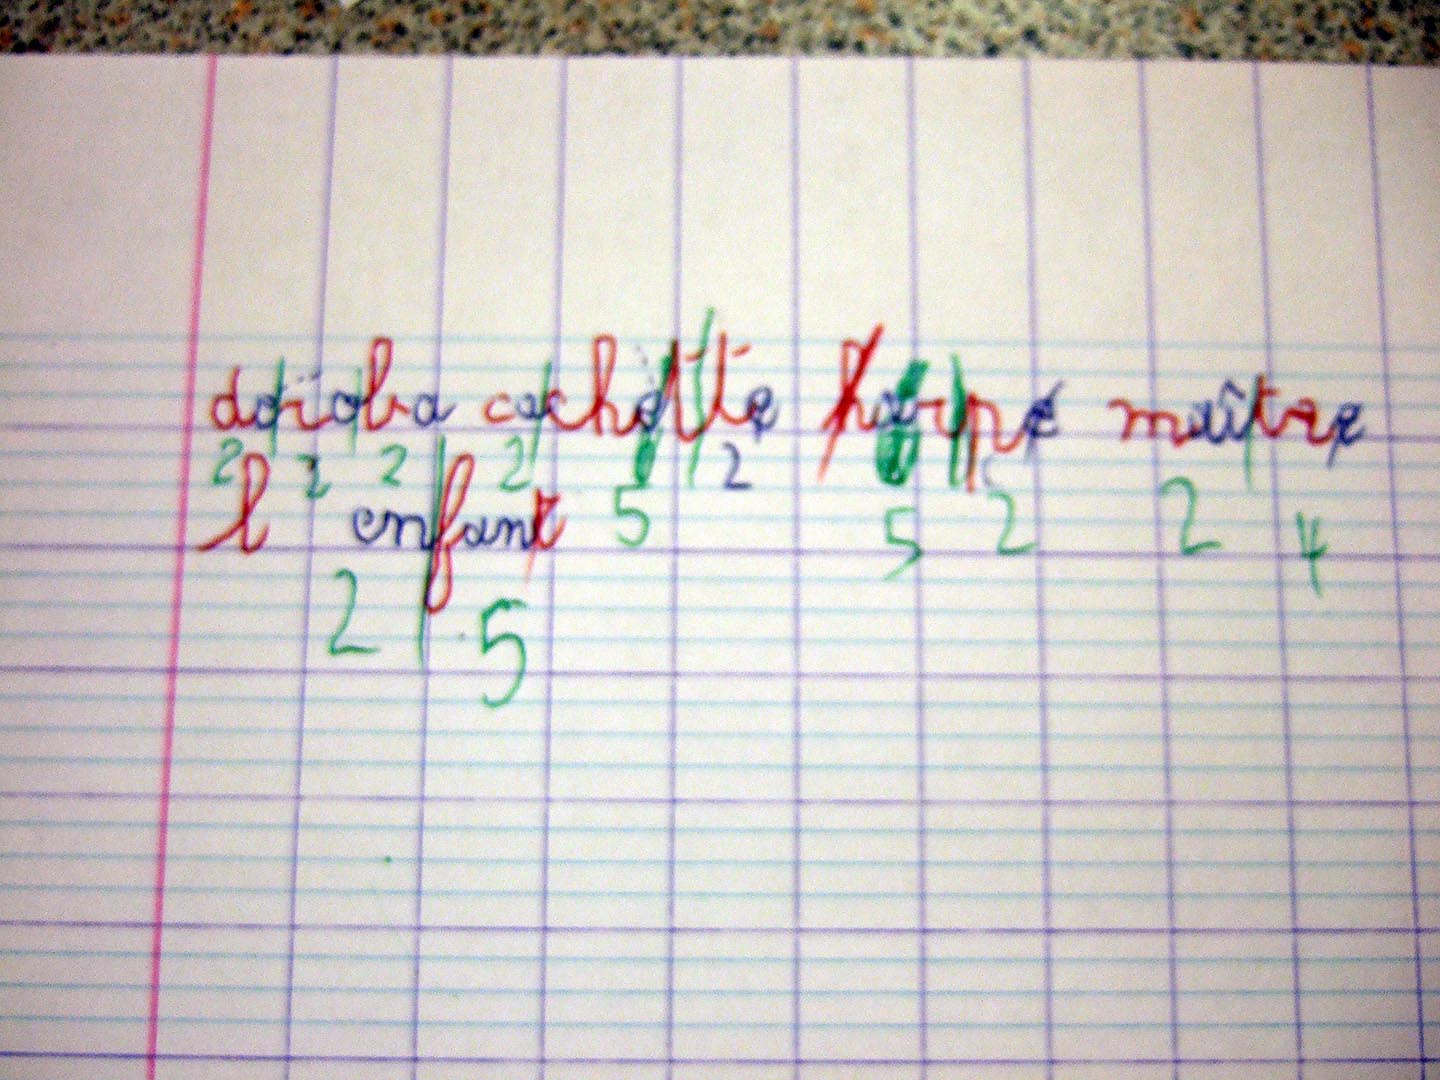 doïoba cachette harpe maître
2 2 2 2 5 2 5 2 2 4
l enfant
2 5